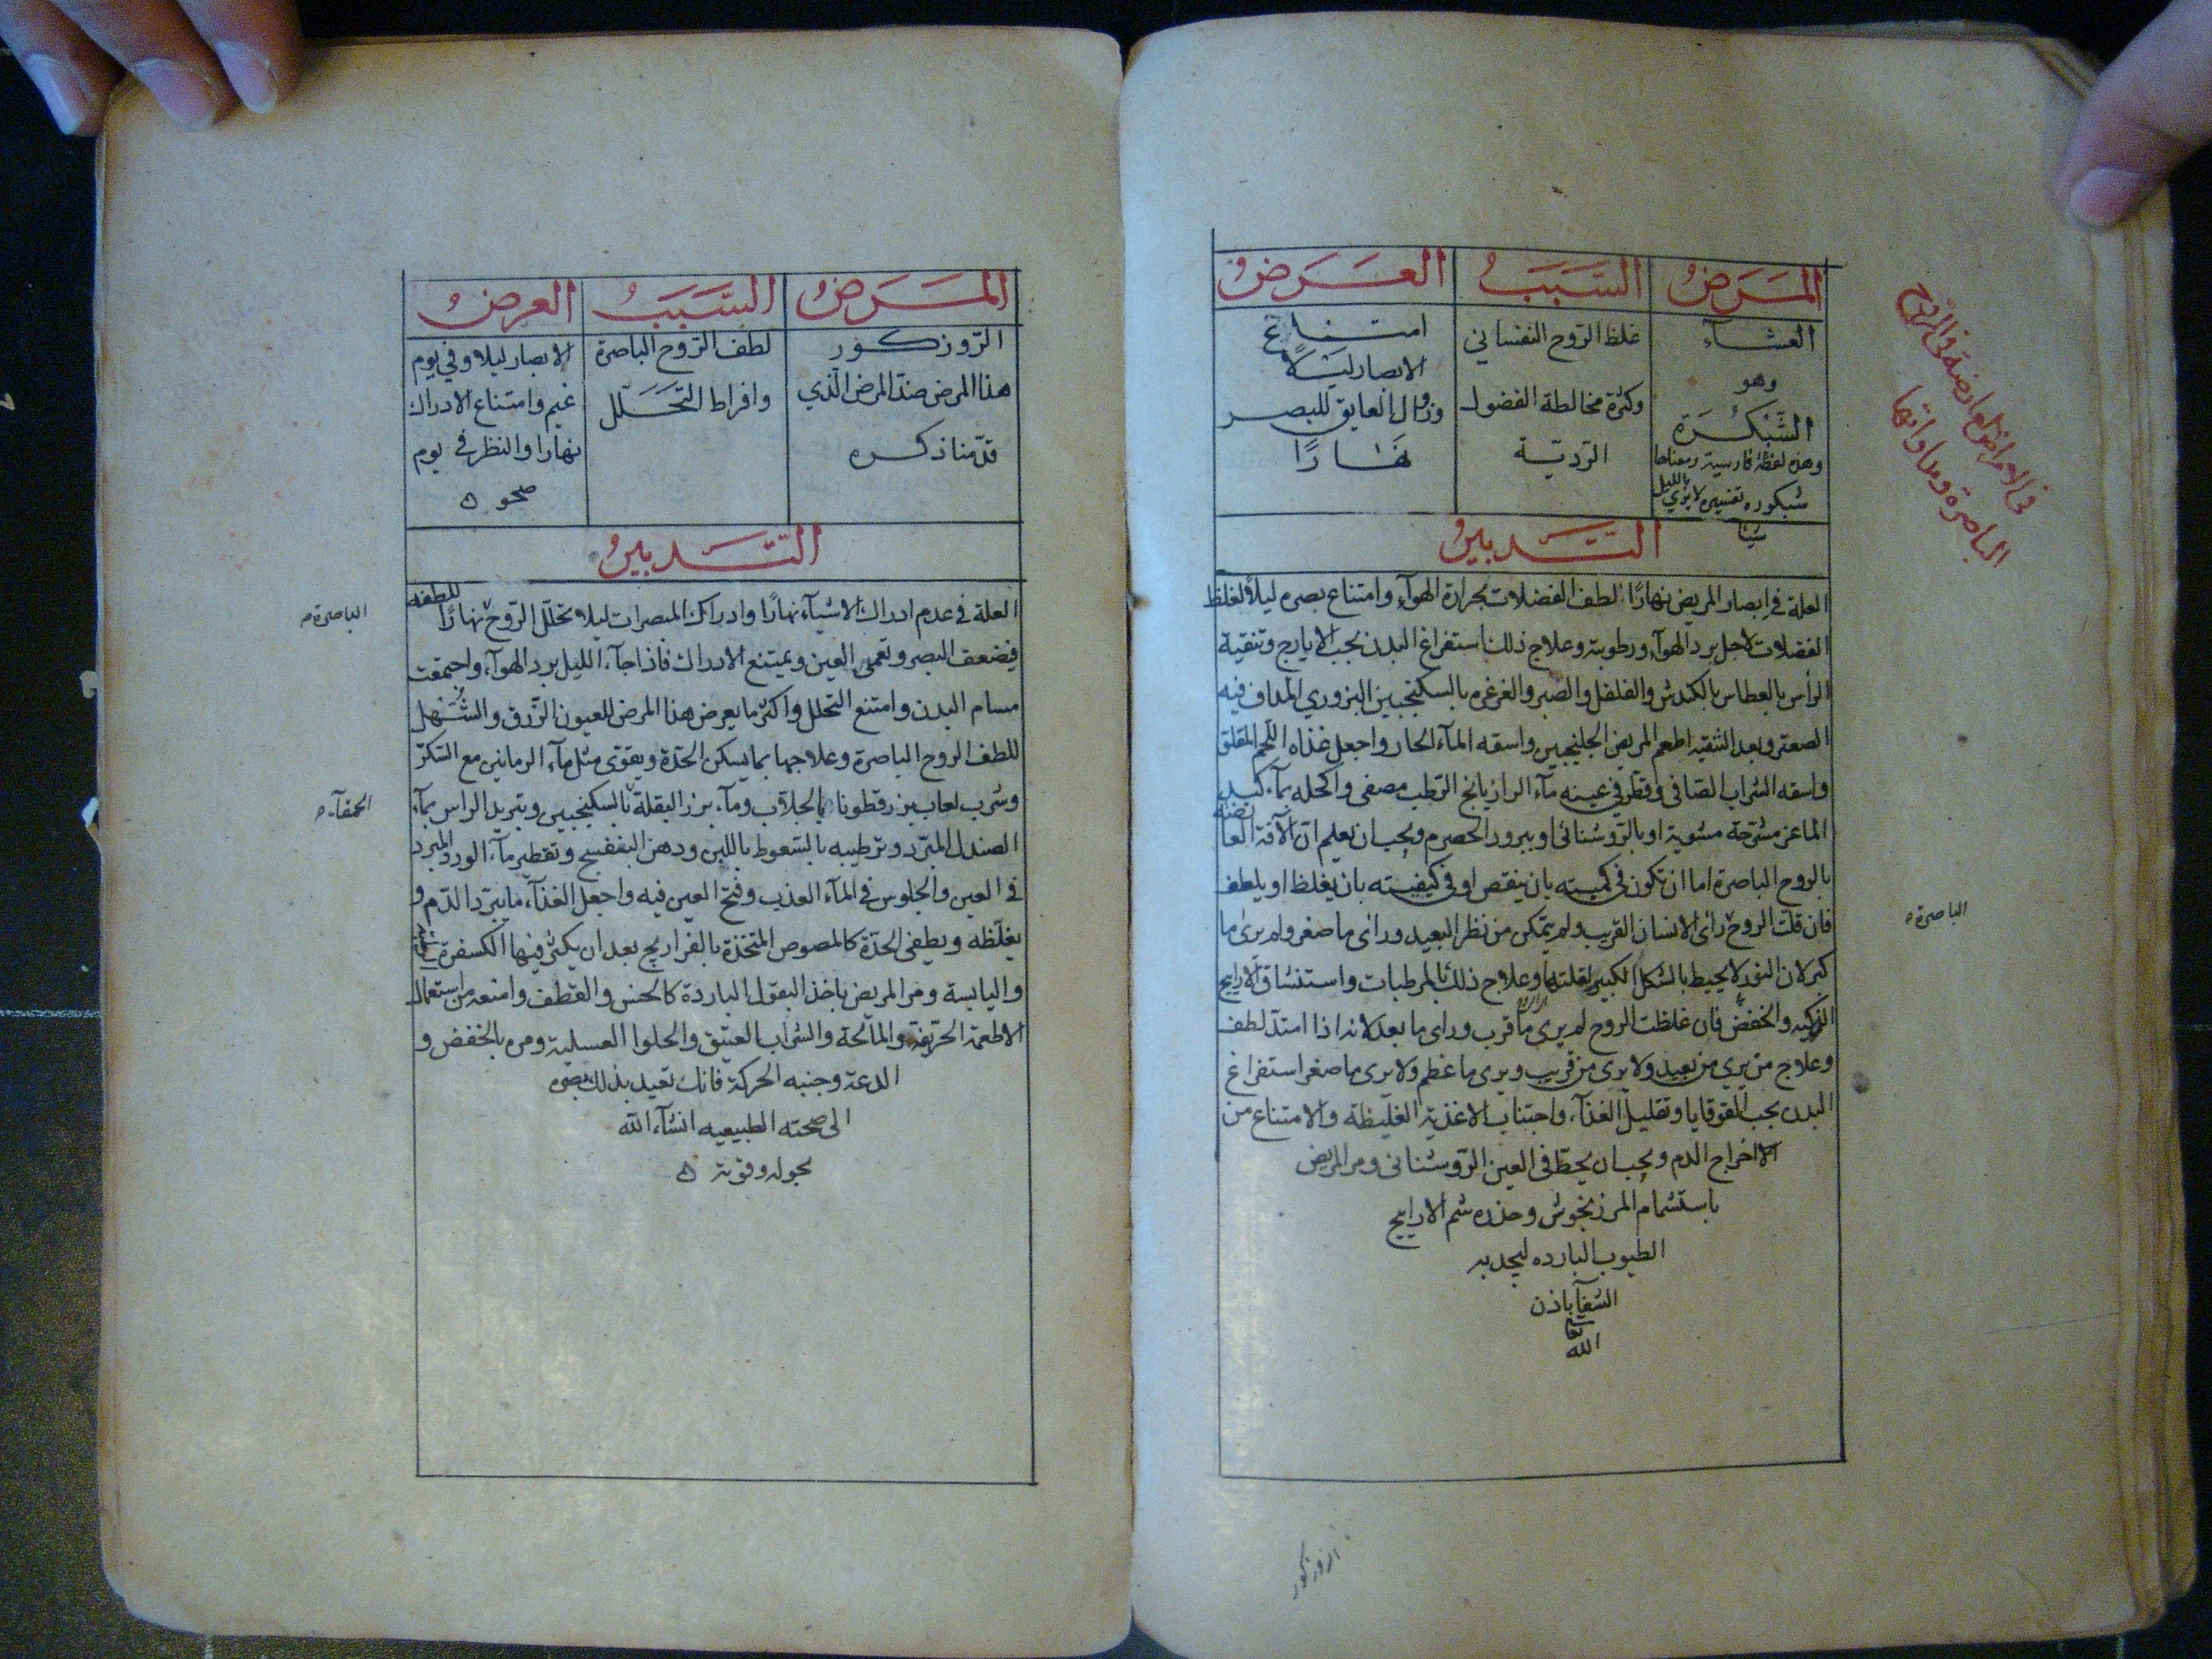 في الامراض العارضة في الروح
الباصرة ومداواتها
المَرَضُ
السَّبَبُ
العَرَضُ
العشآء
وهو
الشَّبْكُرَة
وهذه لفظة فارسية ومعناها
شبكوره تفسيره لا يري بالليل
شيئا
غلظ الرّوح النفساني
وكثرة مخالطة الفضول
الرّديّة
امتناع
الابصار ليلًا
وزوال العايق للبصر
نهارًا
التَّدبيرُ
العلة في ابصار المريض نهارًا لطف الفضلات بحرارة الهوآء وامتناع بصره ليلًا لغلظ
الفضلات لاجل برد الهوآء ورطوبته وعلاج ذلك باستفراغ البدن بحب الايارج وتنقية
الرأس بالعطاس بالكندش والفلفل والصبر والغرغره بالسكنجبين البزوري المداف فيه
الصعتر وبعد التنقيه اطعم المريض الجلنجبين واسقه المآء الحار واجعل غذاه اللحم المقلق
واسقه الشراب الصّافي وقطر في عينه مآء الرازيانج الرّطب مصفى واكحله بمآء كبد
الماعز مشرّحة مشوية او بالرّوشنائي او ببرود الحصرم ويجب ان يعلم انّ الآفة العارضة
بالروح الباصرة اما ان تكون في كميته بان ينقص او في كيفيته بان يغلظ او يلطف
فان قلت الروح رأى الانسان القريب ولم يتمكن من نظر البعيد ورأى ما صغر ولم يرى ما
الباصرة ه
كبر لان النور لا يحيط بالشكل الكبير لقلته وعلاج ذلك بالمرطبات واستنشاق الاراييح
الزكيه والخفض فان غلظت الروح لم يرى ما قرب وراى ما بعد لانه اذا امتدّ لطف
وعلاج من يري من بعيد ولا يرى من قريب ويرى ما عظم ولا يرى ما صغر استفراغ
البدن بحب القوقايا وتقليل الغذآء واجتناب الاغذية الغليظة والامتناع من
الاخراج الدم ويجب ان يحطّ في العين الرّوشنائي ومر المريض
باستشمام المرزنجوش وحذره شم الاراييح
الطيوب البارده ليجد به
الشفآ باذن
الله تعالى
الروزكور
المَرَضُ
السَّبَبُ
العرضُ
الرّوزكور
هذا المرض ضدّ المرض الّذي
قدّمنا ذكره
لطف الرّوح الباصرة
وافراط التَّحَلّل
الابصار ليلا وفي يوم
غيم وامتناع الادراك
نهارا والنظر في يوم
صحو ه
التَّدبيرُ
العلة في عدم ادراك الاشيآء نهارًا وادراك المبصرات ليلا تحلّل الرّوح نهارًا للطفه
الباصرة ه
فيضعف البصر وتعمى العين ويمتنع الادراك فاذا جآء الليل برد الهوآء واجتمعت
مسام البدن وامتنع التحلل واكثر ما يعرض هذا المرض للعيون الزّرق والشُّهل
للطف الروح الباصرة وعلاجها بما يسكن الحدّة ويقوّى مثل مآء الرمانين مع السّكر
وشرب لعاب بزر قطونا بالجلاب ومآء بزر البقلة بالسكنجبين وتبريد الراس بمآء
الحمقآء ه
الصندل المبرّد وترطيبه بالسّعوط باللبن ودهن البنفسج وتقطير مآء الورد المبرد
في العين والجلوس في المآء العذب وفتح العين فيه واجعل الغذآء ما يبرّد الدّم و
يغلّظه ويطفي الحدّة كالمصوص المتخذة بالفراريج بعد ان يكثر فيها الكسفرة
واليابسة ومر المريض باخذ البقول الباردة كالخس والقطف وامنعه من استعمال
الاطعمة الحرّيفة والمالحة والشراب العتيق والحلوا العسلية ومره بالخفض و
الدعة وجنبه الحركة فانك تعيد بذلك بصره
الى صحته الطبيعيه انشآء الله
بحوله وقوته ه